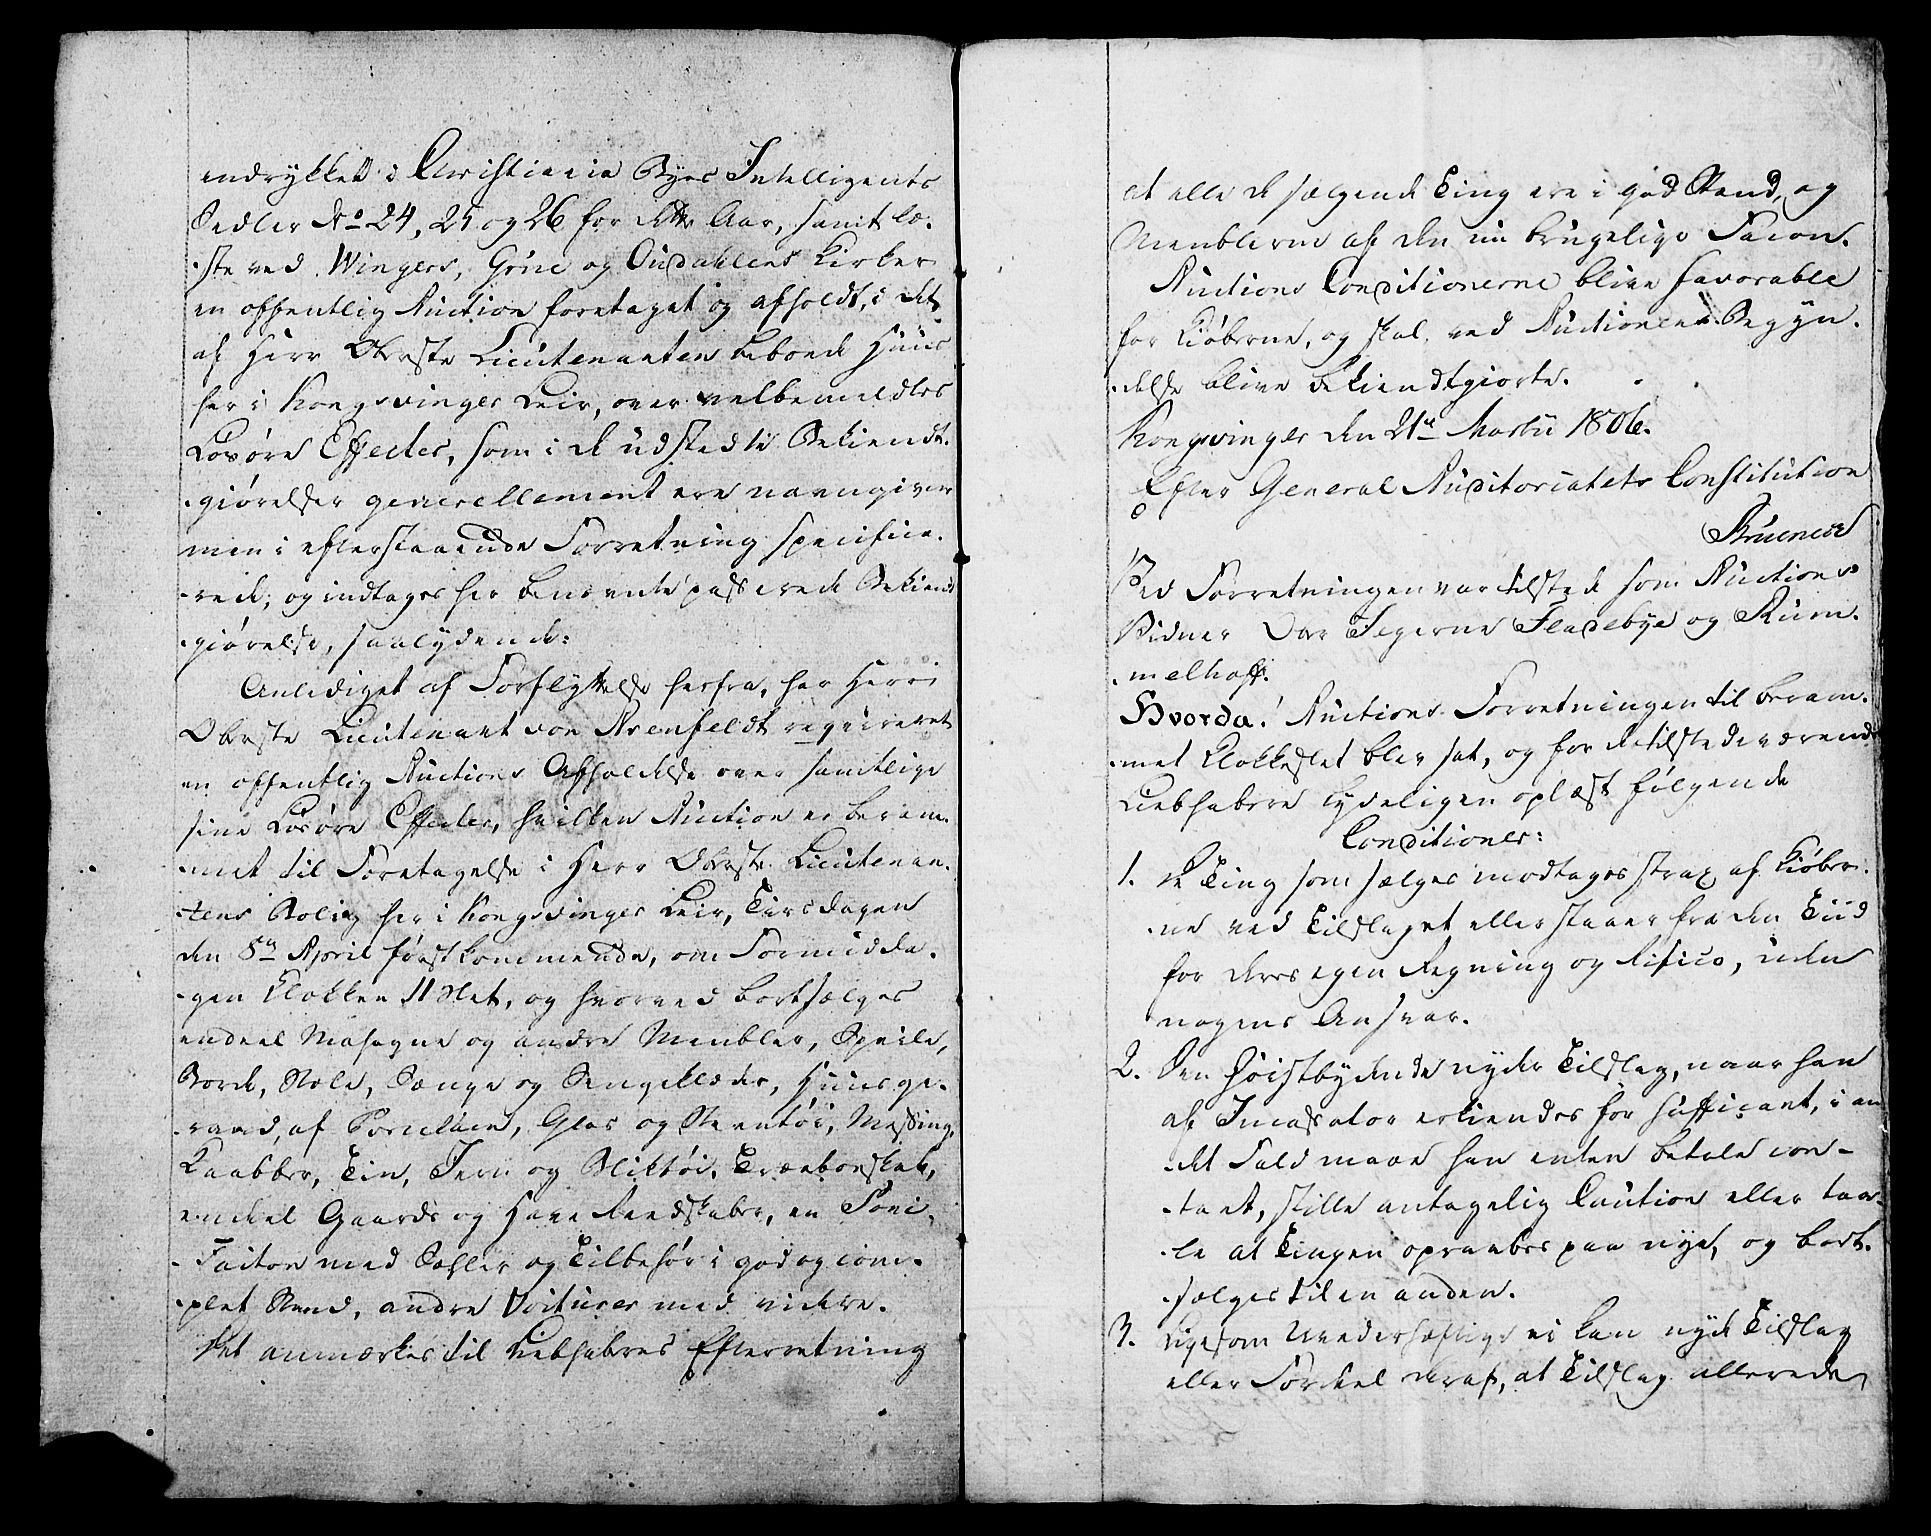 indrykket i Christiania Byes Intelligents
Sedler No 24, 25 og 26 for dette Aar, samt læ-
-ste ved Wingers, Grue og Oudahlens Kirker
en offentlig Auction foretaget og afholdt, i det
af Herr Oberste Lieutenanten beboede Huus
her i Kongsvinger Leir, over velbemeldtes
Løsøre Effecter, som i de udstedte Bekiendt-
-giørelser generellement ere navngivne
men i efterstaaende Forretning specifice-
-rede, og indtages her benævnte passerede Bekiendt
-giørelse, saalydende:
Anlediget af Forflyttelse herfra, har Herr
Oberste Lieutenant von Arenfeldt requireret
en offentlig Auctions Afholdelse over samtlige
sine Løsøre Effecter, hvilken Auction er beram-
-met til Foretagelse i Herr Oberste Lieutenan-
-tens Bolig her i Kongsvinger Leir, Tirsdagen
den 8de April førstkommende, om Formidda-
-gen Klokken 11 Slet, og hvorved bortsælges
endeel Mahogne og andre Meubler, Speile,
Borde, Stole, Senge og Sengeklæder, Huusge-
-raad, af Porcelain, Glas og Steentøi, Messing,
Kaabber, Tin, Jern og Bliktøi, Træeboeskab,
endeel Gaards og Have Reedskaber, en Poni-
-Faiton med Sehler og Tilbehør i god og com-
-plet Stand, andre Voiturer med videre.
Det anmærkes til Liebhabres Efterretning
at alle de sælgende Ting ere i god Stand, og
Meublerne af den nu brugelige Facon.
Auctions Conditionerne blive favorable
for Kiøberne, og skal ved Auctionens Begyn-
-delse blive bekiendtgiorte.
Kongsvinger den 21de Martii 1806.
Efter General Auditoriatets Constitution
Struenese
Ved Forretningen var tilstede som Auctions
Vidner Over Jegerne Fladebye og Rum-
-melhoff.
Hvorda! Auctions Forretningen til beram-
-met Klokkeslet blev sat, og for de tilstedeværende
Liebhabere lydeligen oplæst følgende
Conditioner:
1. De Ting som sælges modtages strax af Kiøber-
-ne ved Tilslaget eller staaer fra den Tiid
for deres egen Regning og Risico, uden
nogens Ansvar.
2. Den høistbydende nyder Tilslag, naar han
af Incassator erkiendes for sufficant, i an-
-det Fald maae han enten betale con-
-tant, stille antagelig Caution eller taa-
-le at Tingen opraabes paa nye, og bort-
-sælges til en anden.
3. Ligesom Uvederhæftige ei kan nyde Tilslag
eller Fordeel deraf, at Tilslag allerede